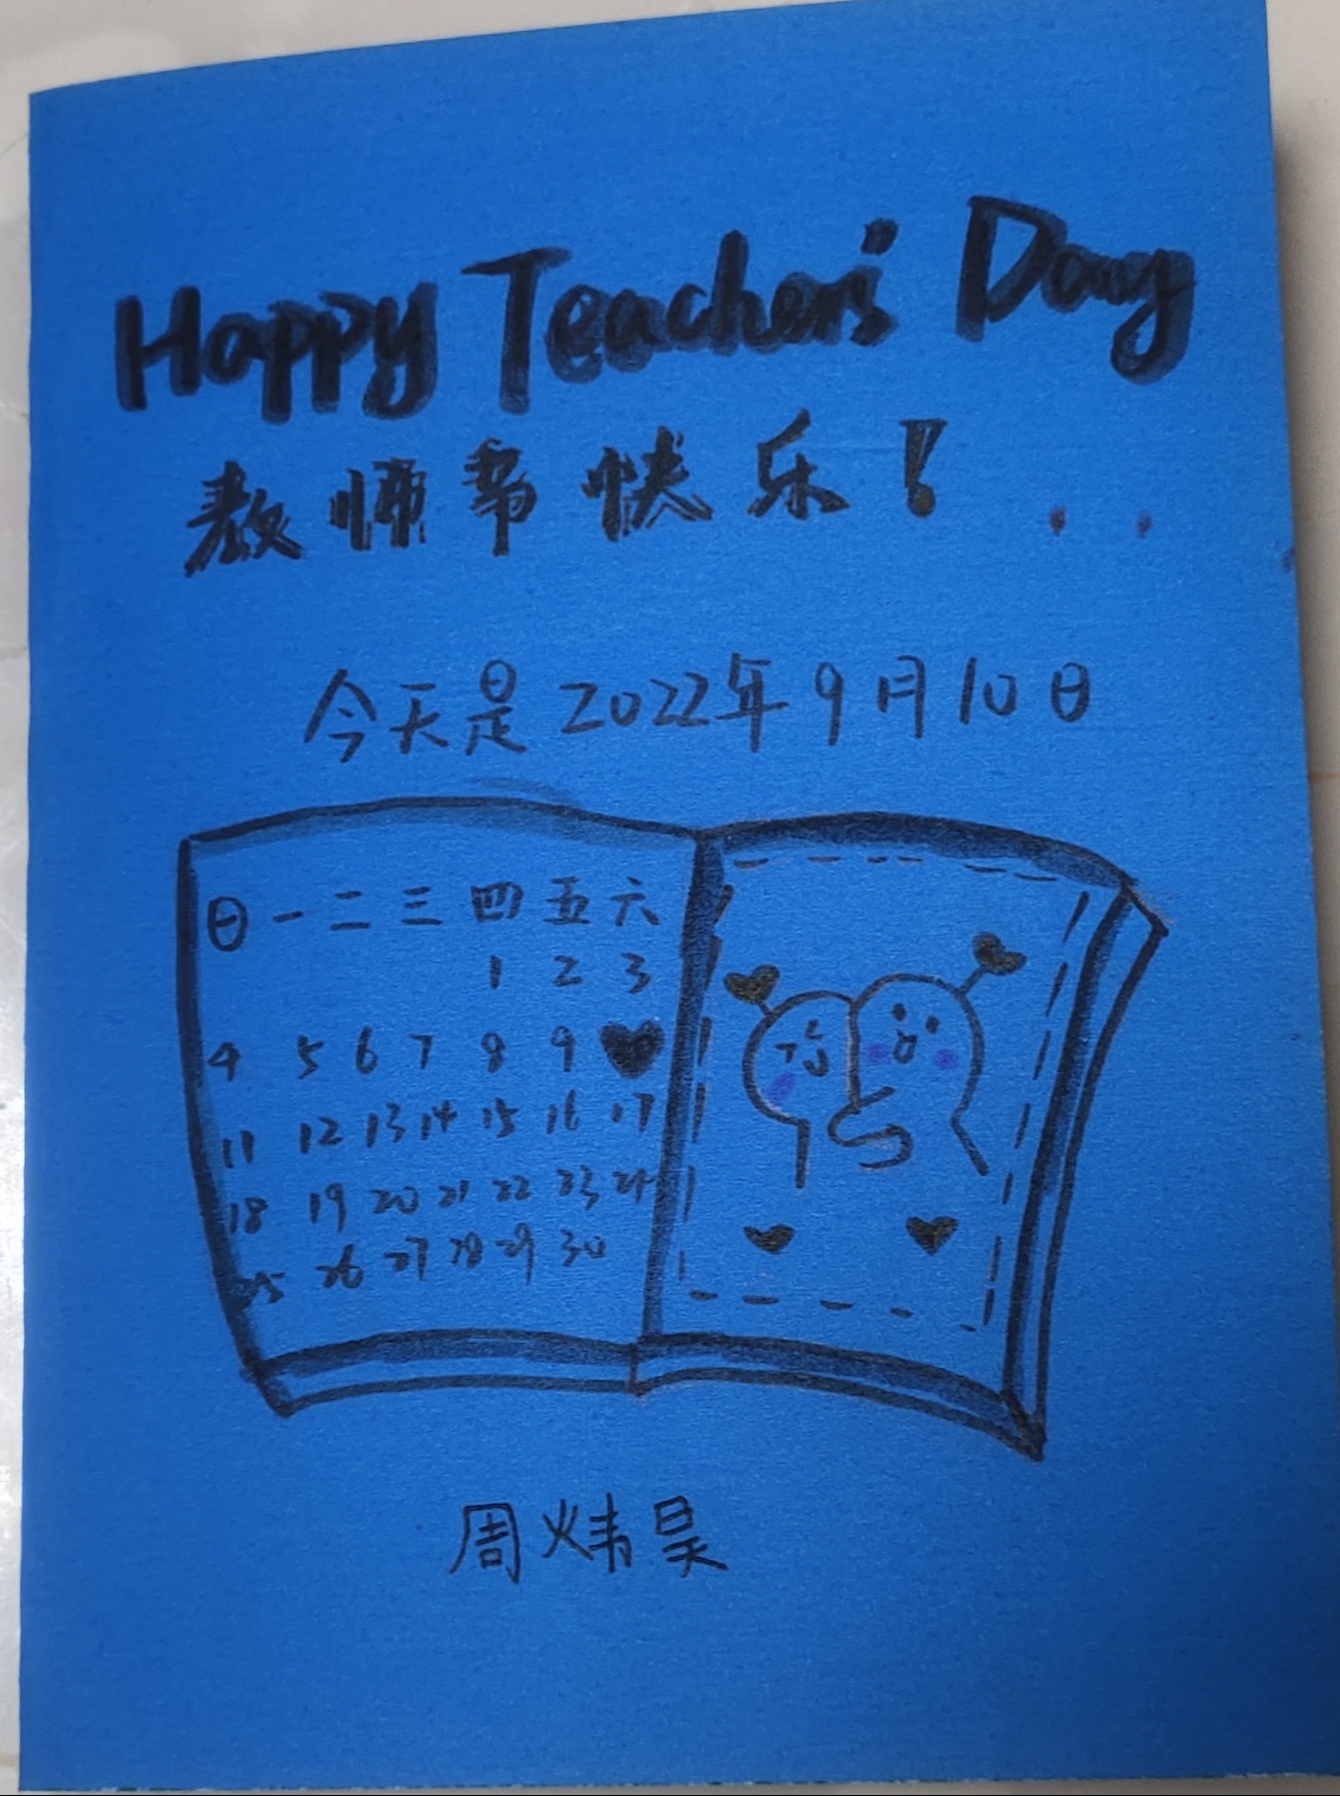 Happy Teachers' Day
教师节快乐！
今天是2022年9月10日
日 一 二 三 四 五 六
1 2 3
4 5 6 7 8 9
11 12 13 14 15 16 17
18 19 20 21 22 23 24
25 26 27 28 29 30
周炜昊